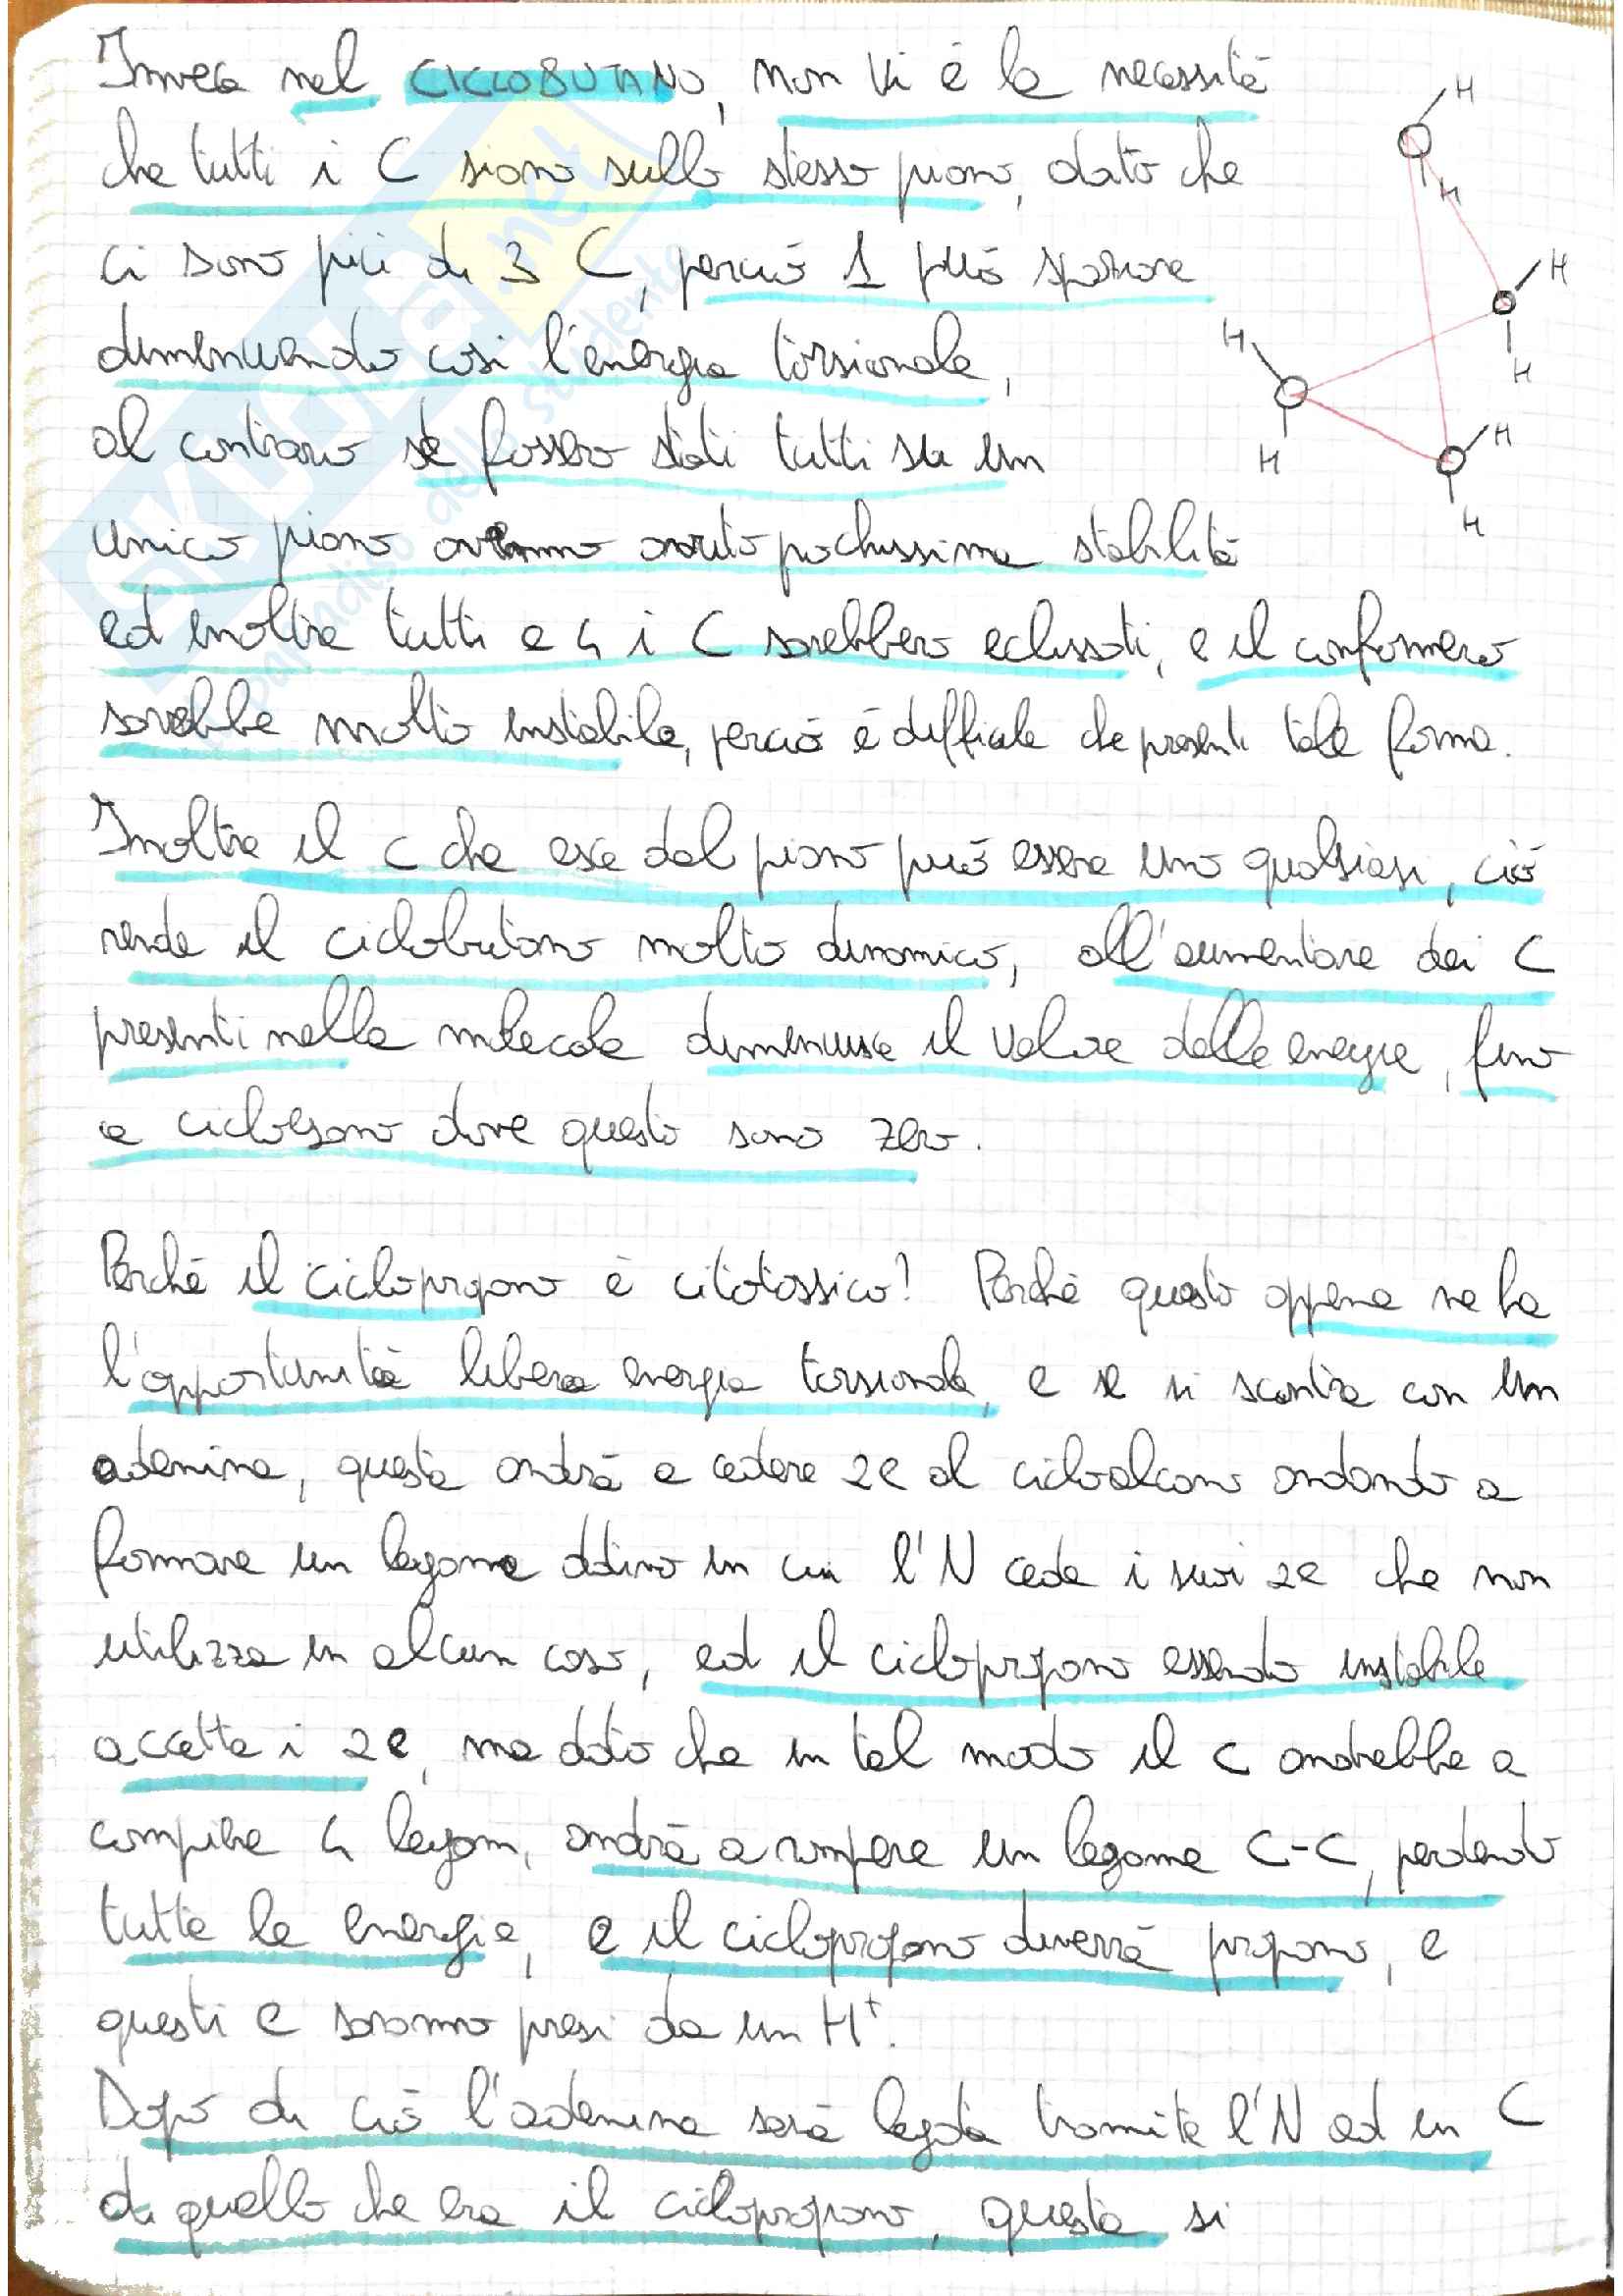 Invece nel CICLOBUTANO, non vi è la necessità
che tutti i C siano sullo stesso piano, dato che
ci sono più di 3 C, perciò 1 può spostare
diminuendo così l'energia torsionale,
al contrario se fossero stati tutti su un
unico piano avremmo avuto pochissima stabilità
ed inoltre tutti e 4 i C sarebbero eclissati, e il conformero
sarebbe molto instabile, perciò è difficile che presenti tale forma.
Inoltre il C che esce dal piano può essere uno qualsiasi, ciò
rende il ciclobutano molto dinamico, all'aumentare dei C
presenti nella molecola diminuisce il valore delle energie, fino
a cicloesano dove questo sono zero.
Perchè il ciclopropano è citotossico? Perchè questo appena ne ha
l'opportunità libera energia torsionale, e se si scontra con un
adenina, questa andrà a cedere 2e al cicloalcano andando a
formare un legame dativo in cui l'N cede i suoi 2e che non
utilizza in alcun caso, ed il ciclopropano essendo instabile
accetta i 2e, ma dato che in tal modo il C andrebbe a
compiere 4 legami, andrà a rompere un legame C-C, perdendo
tutte le energie, e il ciclopropano diverrà propano, e
questi e saranno presi da un H⁺.
Dopo di ciò l'adenina sarà legata tramite l'N ad un C
di quello che era il ciclopropano, questa si
H
H
H
H
H
H
H
H
SKUOLA.net
paradiso dello studente